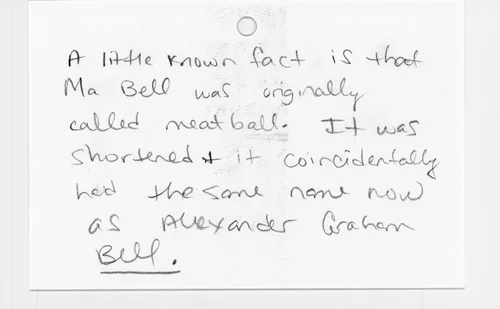 A little known fact is that
Ma Bell was originally
called meatball. It was
shortened + it coincidentally
had the same name now
as Alexander Graham
Bell.